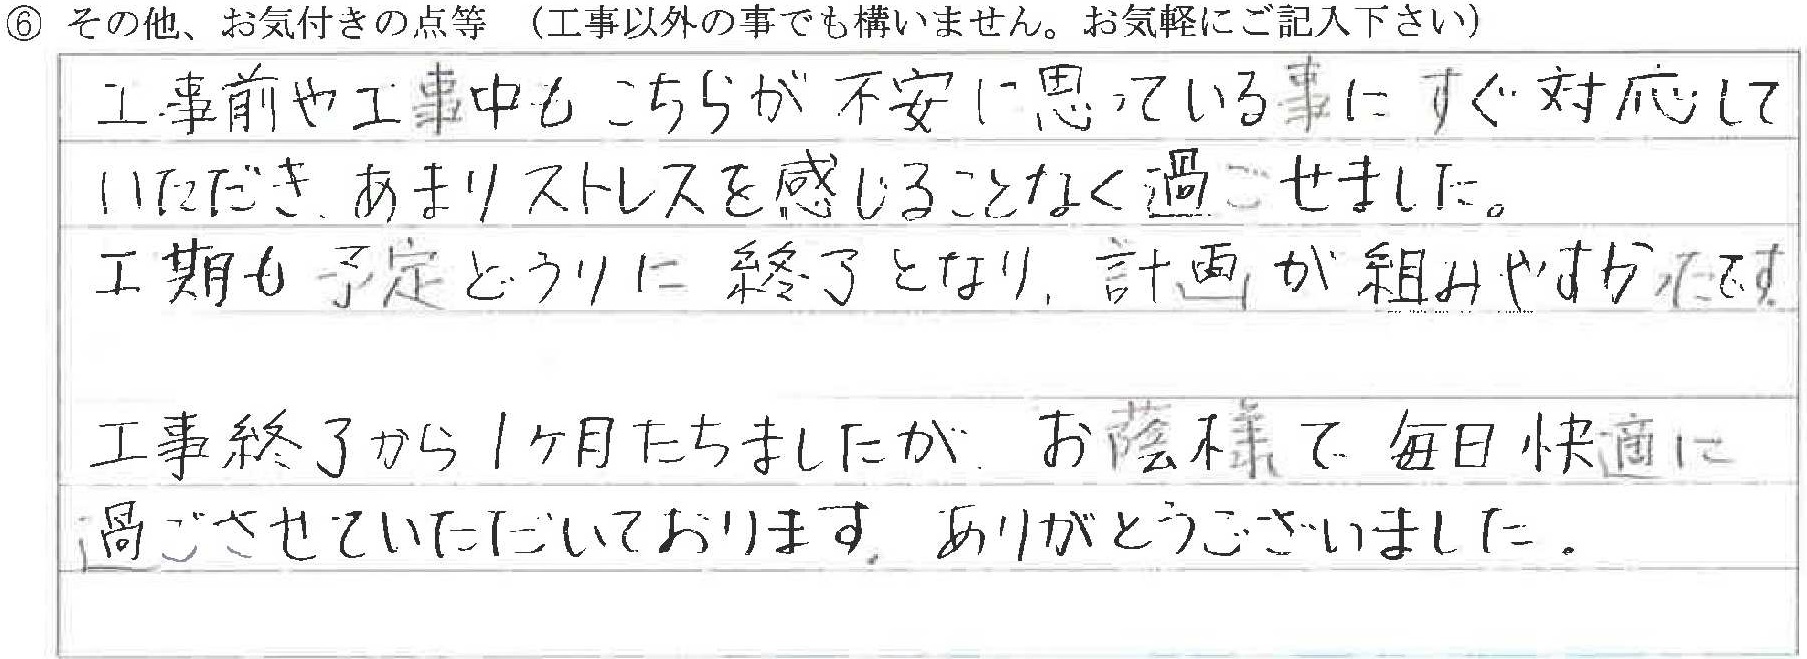 ⑥ その他、お気付きの点等 （工事以外の事でも構いません。お気軽にご記入下さい）
工事前や工事中もこちらが不安に思っている事にすぐ対応して
いただき、あまりストレスを感じることなく過ごせました。
工期も予定どうりに終了となり、計画が組みやすかったです
工事終了から1ヶ月たちましたが、お蔭様で毎日快適に
過ごさせていただいております。ありがとうございました。